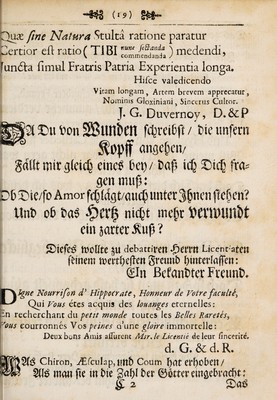 (19)
Quæ sine Natura Stultâ ratione paratur
Certior est ratio (TIBI nunc sectanda commendanda) medendi,
Juncta simul Fratris Patria Experientia longa.
Hisce valedicendo
Vitam longam, Artem brevem apprecatur,
Nominis Gloxiniani, Sincerus Cultor.
J. G. Duvernoy, D. & P
DA Du von Wunden schreibst / die unsern
Kopff angehen /
Fällt mir gleich eines bey / daß ich Dich fra-
gen muß:
Ob Die / so Amor schlägt / auch unter Ihnen stehen?
Und ob das Hertz nicht mehr verwundt
ein zarter Kuß?
Dieses wollte zu debattiren Herrn Licentiaten
seinem werthesten Freund hinterlassen:
EIn Bekandter Freund.
Digne Nourrison d' Hippocrate, Honneur de Votre faculté,
Qui Vous êtes acquis des louanges eternelles:
En recherchant du petit monde toutes les Belles Raretés,
Vous couronnés Vos peines d'une gloire immortelle:
Deux bons Amis assurent Mſr. le Licentié de leur sincerité.
d. G. & d. R.
WAs Chiron, Æsculap, und Coum hat erhoben /
Als man sie in die Zahl der Götter eingebracht:
C 2 Das